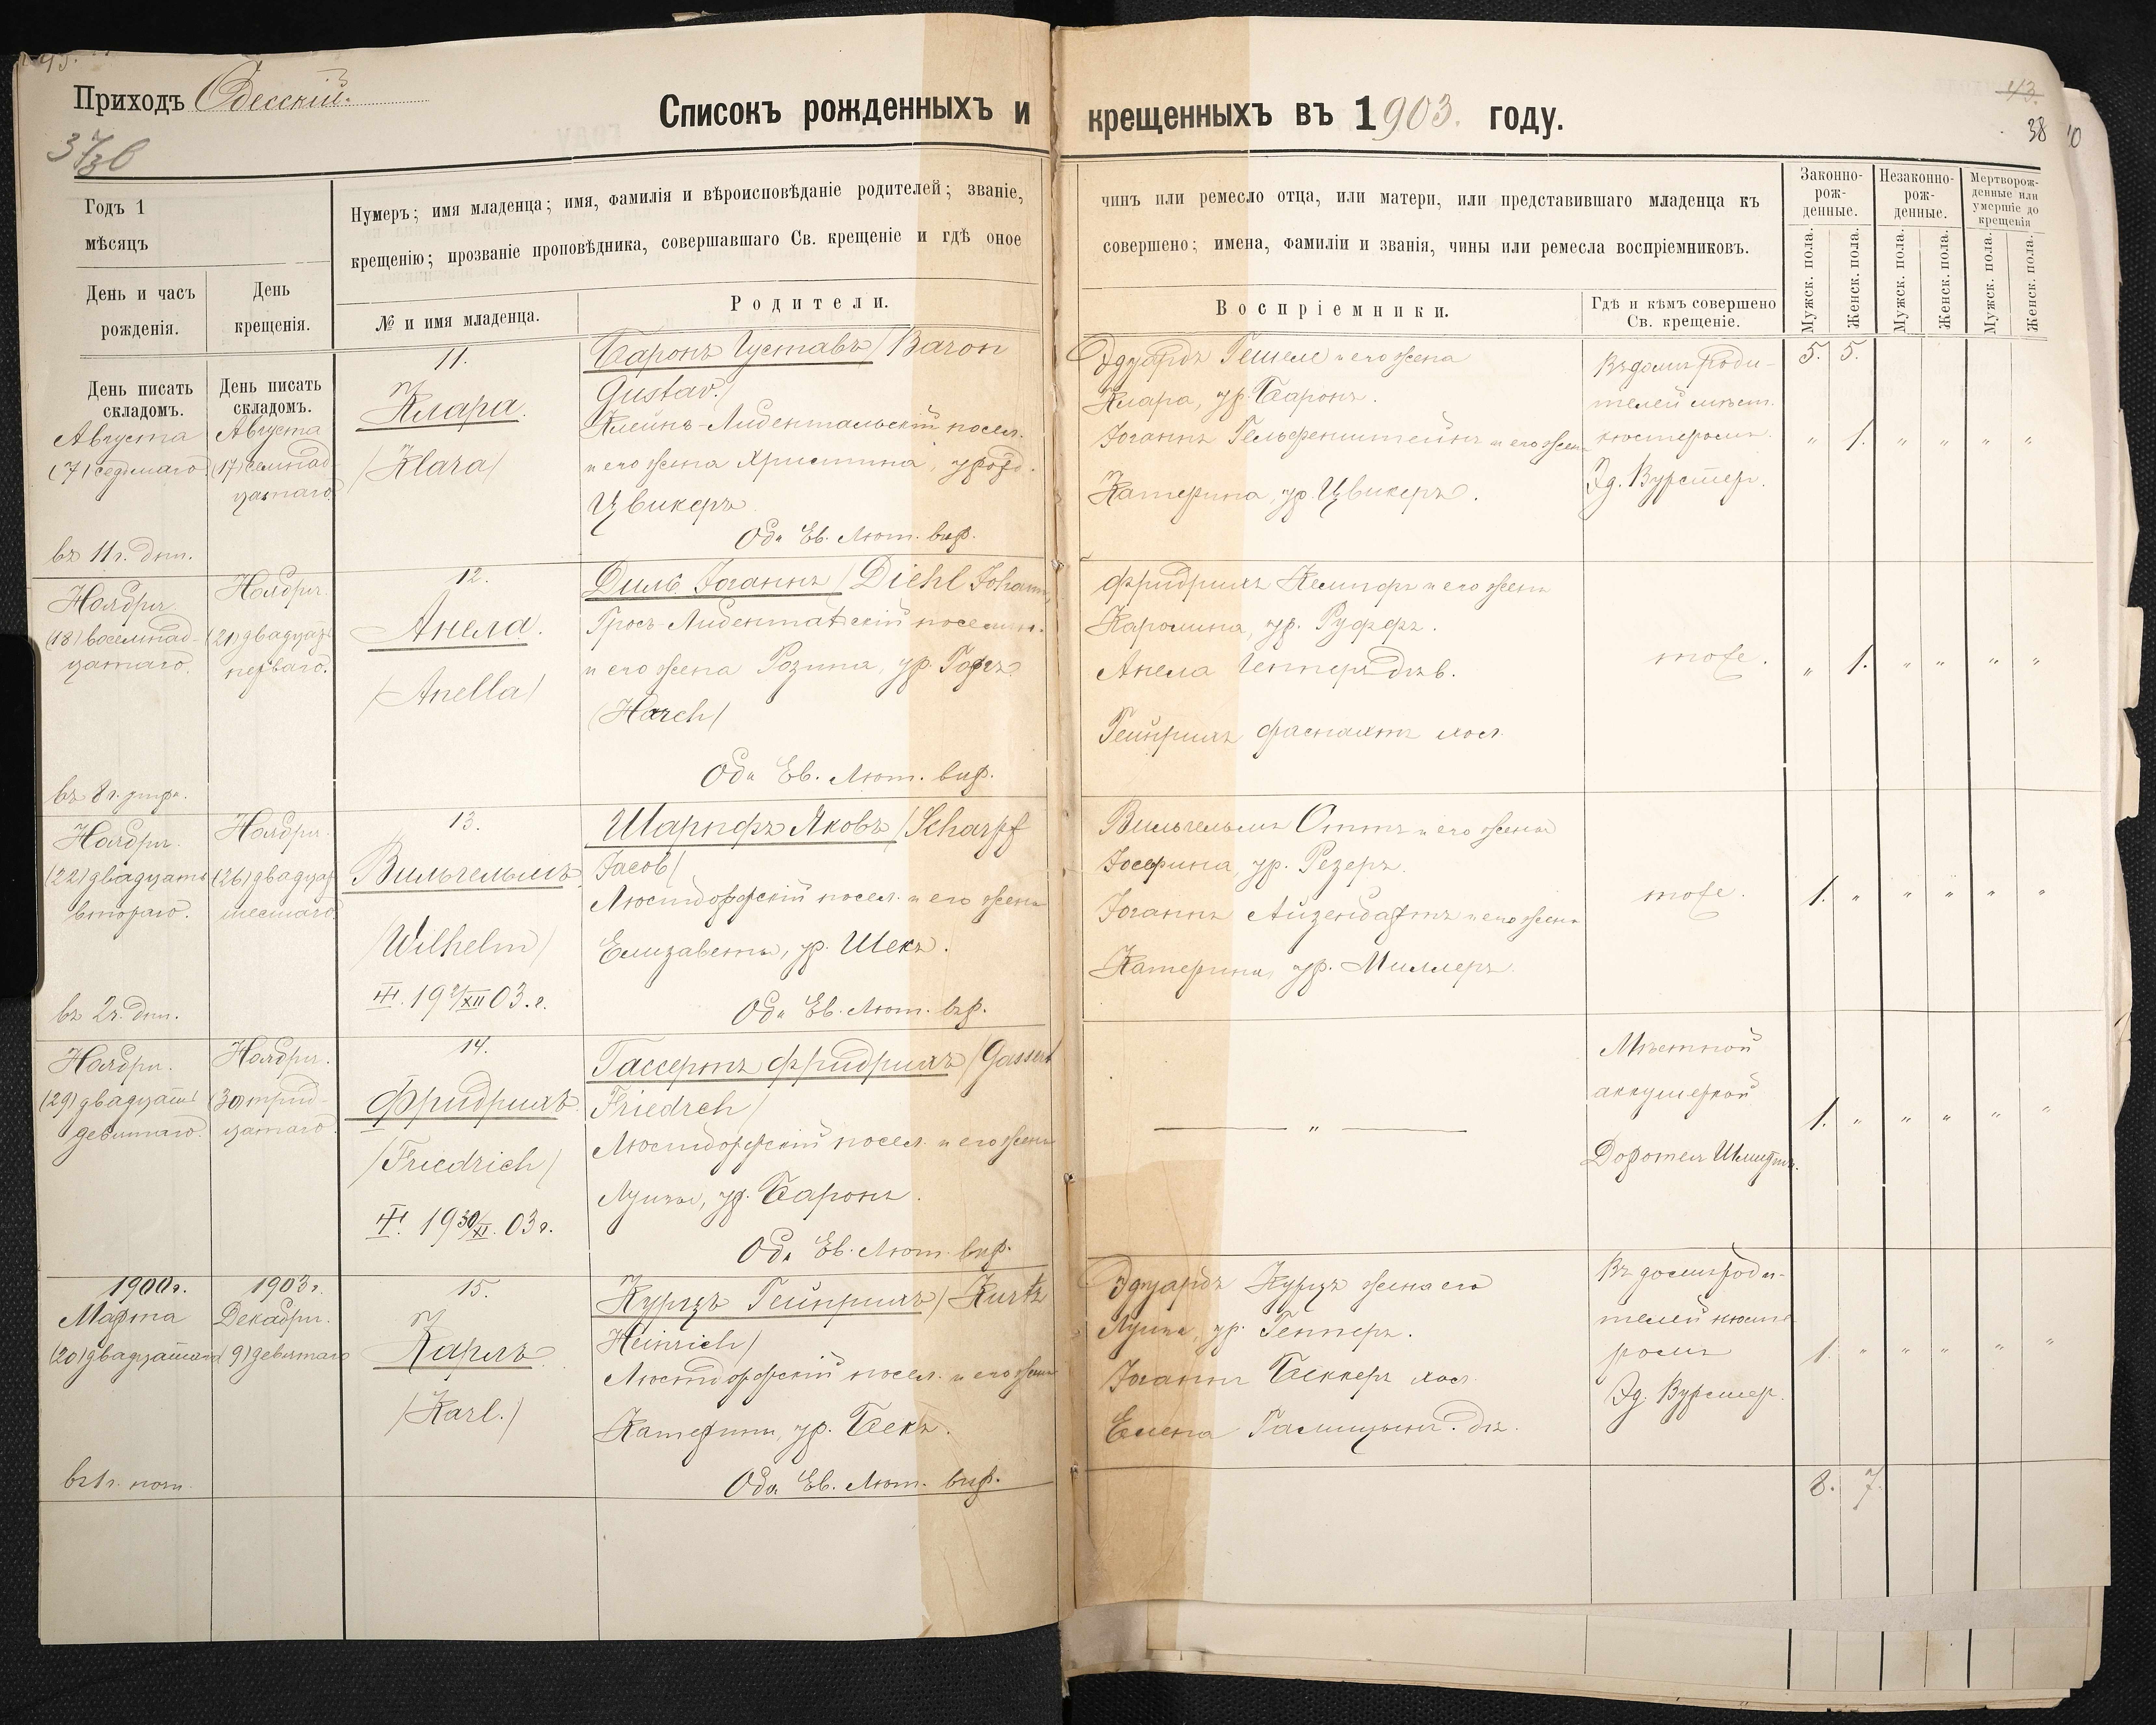 Приходъ Одесскій.
Списокъ рожденныхъ и крещенныхъ въ 1903. году.
43.
38
Годъ 1
мѣсяцъ
День и часъ
рожденія.
День
крещенія.
Нумеръ; имя младенца; имя, фамилія и вѣроисповѣданіе родителей; званіе,
крещенію; прозваніе проповѣдника, совершавшаго Св. крещеніе и гдѣ оное
№ и имя младенца.
Родители.
чинъ или ремесло отца, или матери, или представившаго младенца къ
совершено; имена, фамиліи и званія, чины или ремесла воспріемниковъ.
Воспріемники.
Гдѣ и кѣмъ совершено
Св. крещеніе.
Законно-
рож-
денные.
Незаконно-
рож-
денные.
Мертворож-
денные или
умершіе до
крещенія
Мужск. пола.
Женск. пола.
Мужск. пола.
Женск. пола.
Мужск. пола.
Женск. пола.
День писать
складомъ.
День писать
складомъ.
Августа
(7) седьмаго
въ 11 ч. дня.
Августа
(17) семнад-
цатаго
11.
Клара.
/Klara/
Баронъ Густавъ /Baron
Gustav./
Клейнъ-Либентальскій посел.
и его жена Христина, урожд.
Цвикеръ
Оба Ев. Лют. вѣр.
Эдуардъ Гешеле и его жена
Клара, ур. Баронъ.
Іоганнъ Гельфенштейнъ и его жен.
Катерина, ур. Цвикеръ.
Въ домѣ роди-
телей мѣст.
кюстеромъ.
Эд. Вурстер.
5. 5.
" 1. " " " "
Ноября.
(18) восемнад-
цатаго.
въ 8 ч. утра.
Ноября.
(21) двадцать
перваго.
12.
Анела.
/Anella/
Диль Іоганнъ /Diehl Johann/
Гросъ-Либентальскій поселян.
и его жена Розина, ур. Горхъ
/Horch/
Оба Ев. Лют. вѣр.
Фридрихъ Кемпфъ и его жена
Каролина, ур. Руффъ.
Анела дѣв.
Гейнрихъ Фаснахтъ хол.
тоже.
" 1. " " " "
Ноября.
(22) двадцать
втораго.
въ 2 ч. дня.
Ноября.
(26) двадцать
шестаго.
13.
Вильгельмъ
/Wilhelm/
19 2/XII 03. г.
Шарпфъ Яковъ /Scharpf
Jacob/
Люстдорфскій посел. и его жена
Елизавета, ур. Шекъ.
Оба Ев. Лют. вѣр.
Вильгельмъ Оттъ и его жена
Іосефина, ур. Резеръ.
Іоганнъ Айзенбартъ и его жена
Катерина, ур. Миллеръ.
тоже.
1. " " " " "
Ноября.
(29) двадцать
девятаго.
Ноября.
(30) трид-
цатаго.
14.
Фридрихъ.
/Friedrich/
19 30/XI. 03 г.
Гассертъ Фридрихъ /Gassert
Friedrch/
Люстдорфскій посел. и его жена
Луиза, ур. Баронъ.
Оба Ев. Лют. вѣр.
— " —
Мѣстной
акушеркой
Доротея Шмидтъ.
1. " " " " "
1900 г.
Марта
(20) двадцатаго
въ 1 ч. ноч.
1903 г.
Декабря.
(9) девятаго
15.
Карлъ
/Karl./
Курцъ Гейнрихъ /Kurtz
Heinrich/
Люстдорфскій посел. и его жена
Катерина, ур. Бекъ.
Оба Ев. Лют. вѣр.
Эдуардъ Курцъ жена его
Луиза, ур. Геннеръ.
Іоганнъ Беккеръ хол.
Елена Галицынъ. дѣ.
Въ домѣ роди-
телей кюсте-
ромъ
Эд. Вурстер.
1. " " " " "
8. 7.